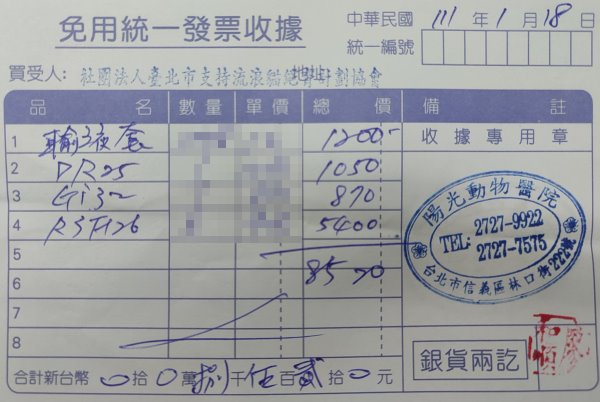 免用統一發票收據
中華民國 111 年 1 月 18 日
統一編號
買受人: 社團法人臺北市支持流浪貓絕育計劃協會
地址:
品名 數量 單價 總價 備註
1 輸液套 1200-
收據專用章
2 DR25 1050
3 870
4 5400
5
6 8520
7
8
陽光動物醫院
TEL: 2727-9922
2727-7575
台北市信義區林口街222號
銀貨兩訖
合計新台幣 0 拾 0 萬 捌 千 伍 百 貳 拾 0 元